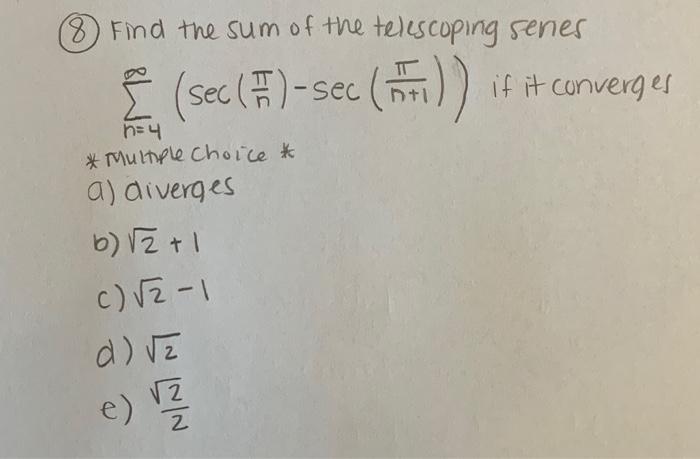 ⑧ Find the sum of the telescoping series
∞
Σ (sec(π/n) - sec(π/n+1)) if it converges
n=4
* Multiple Choice *
a) diverges
b) √2 + 1
c) √2 - 1
d) √2
e) √2/2